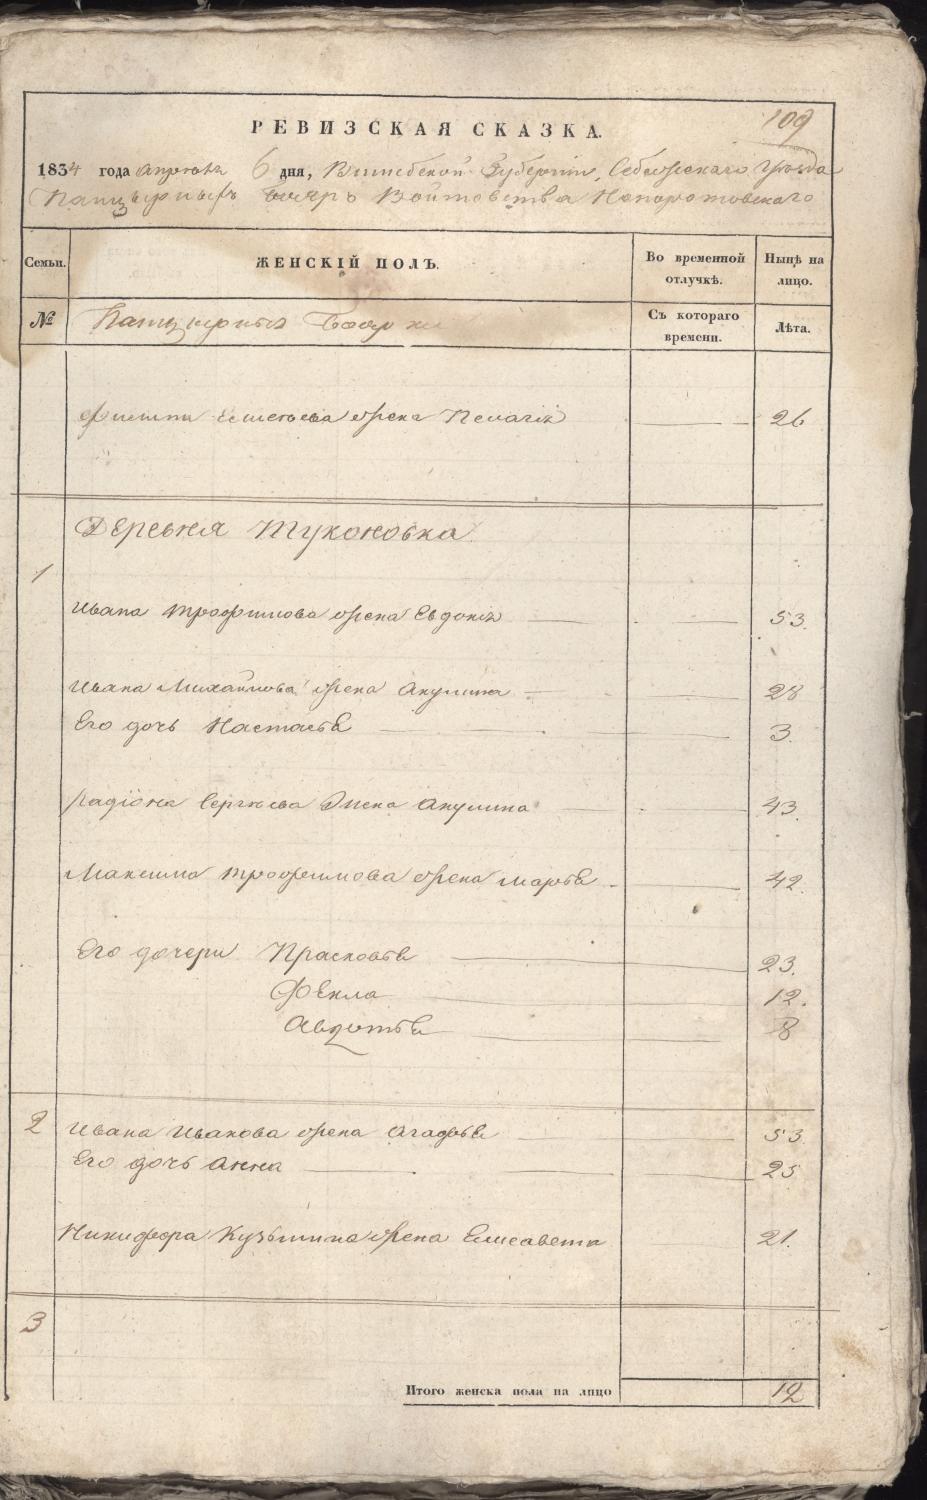 109
РЕВИЗСКАЯ СКАЗКА.
1834 года апреля 6 дня, Витебской Губернии, Себежского Уезда
Панцырныхъ бояръ Войтовства Непоротовскаго
Семьи. ЖЕНСКІЙ ПОЛЪ. Во временной отлучкѣ. Нынѣ на лицо.
№ Панцырныя Боярки Съ котораго времени. Лѣта.
жена Пелагія 26
Деревня Туконовка
1
Ивана Трофимова жена Евдокія 53.
Ивана Михайлова жена Акулина 28
Его дочь Настасья 3.
Радіона Сергѣева жена Акулина 43.
Максима Трофимова жена Марья 42.
Его дочери Прасковья 23.
Фекла 12.
Авдотья 8
2 Ивана Иванова жена Агафья 53.
Его дочь Анна 25
Никифора Кузьмина жена Елисавета 21.
3
Итого женска пола на лицо 12